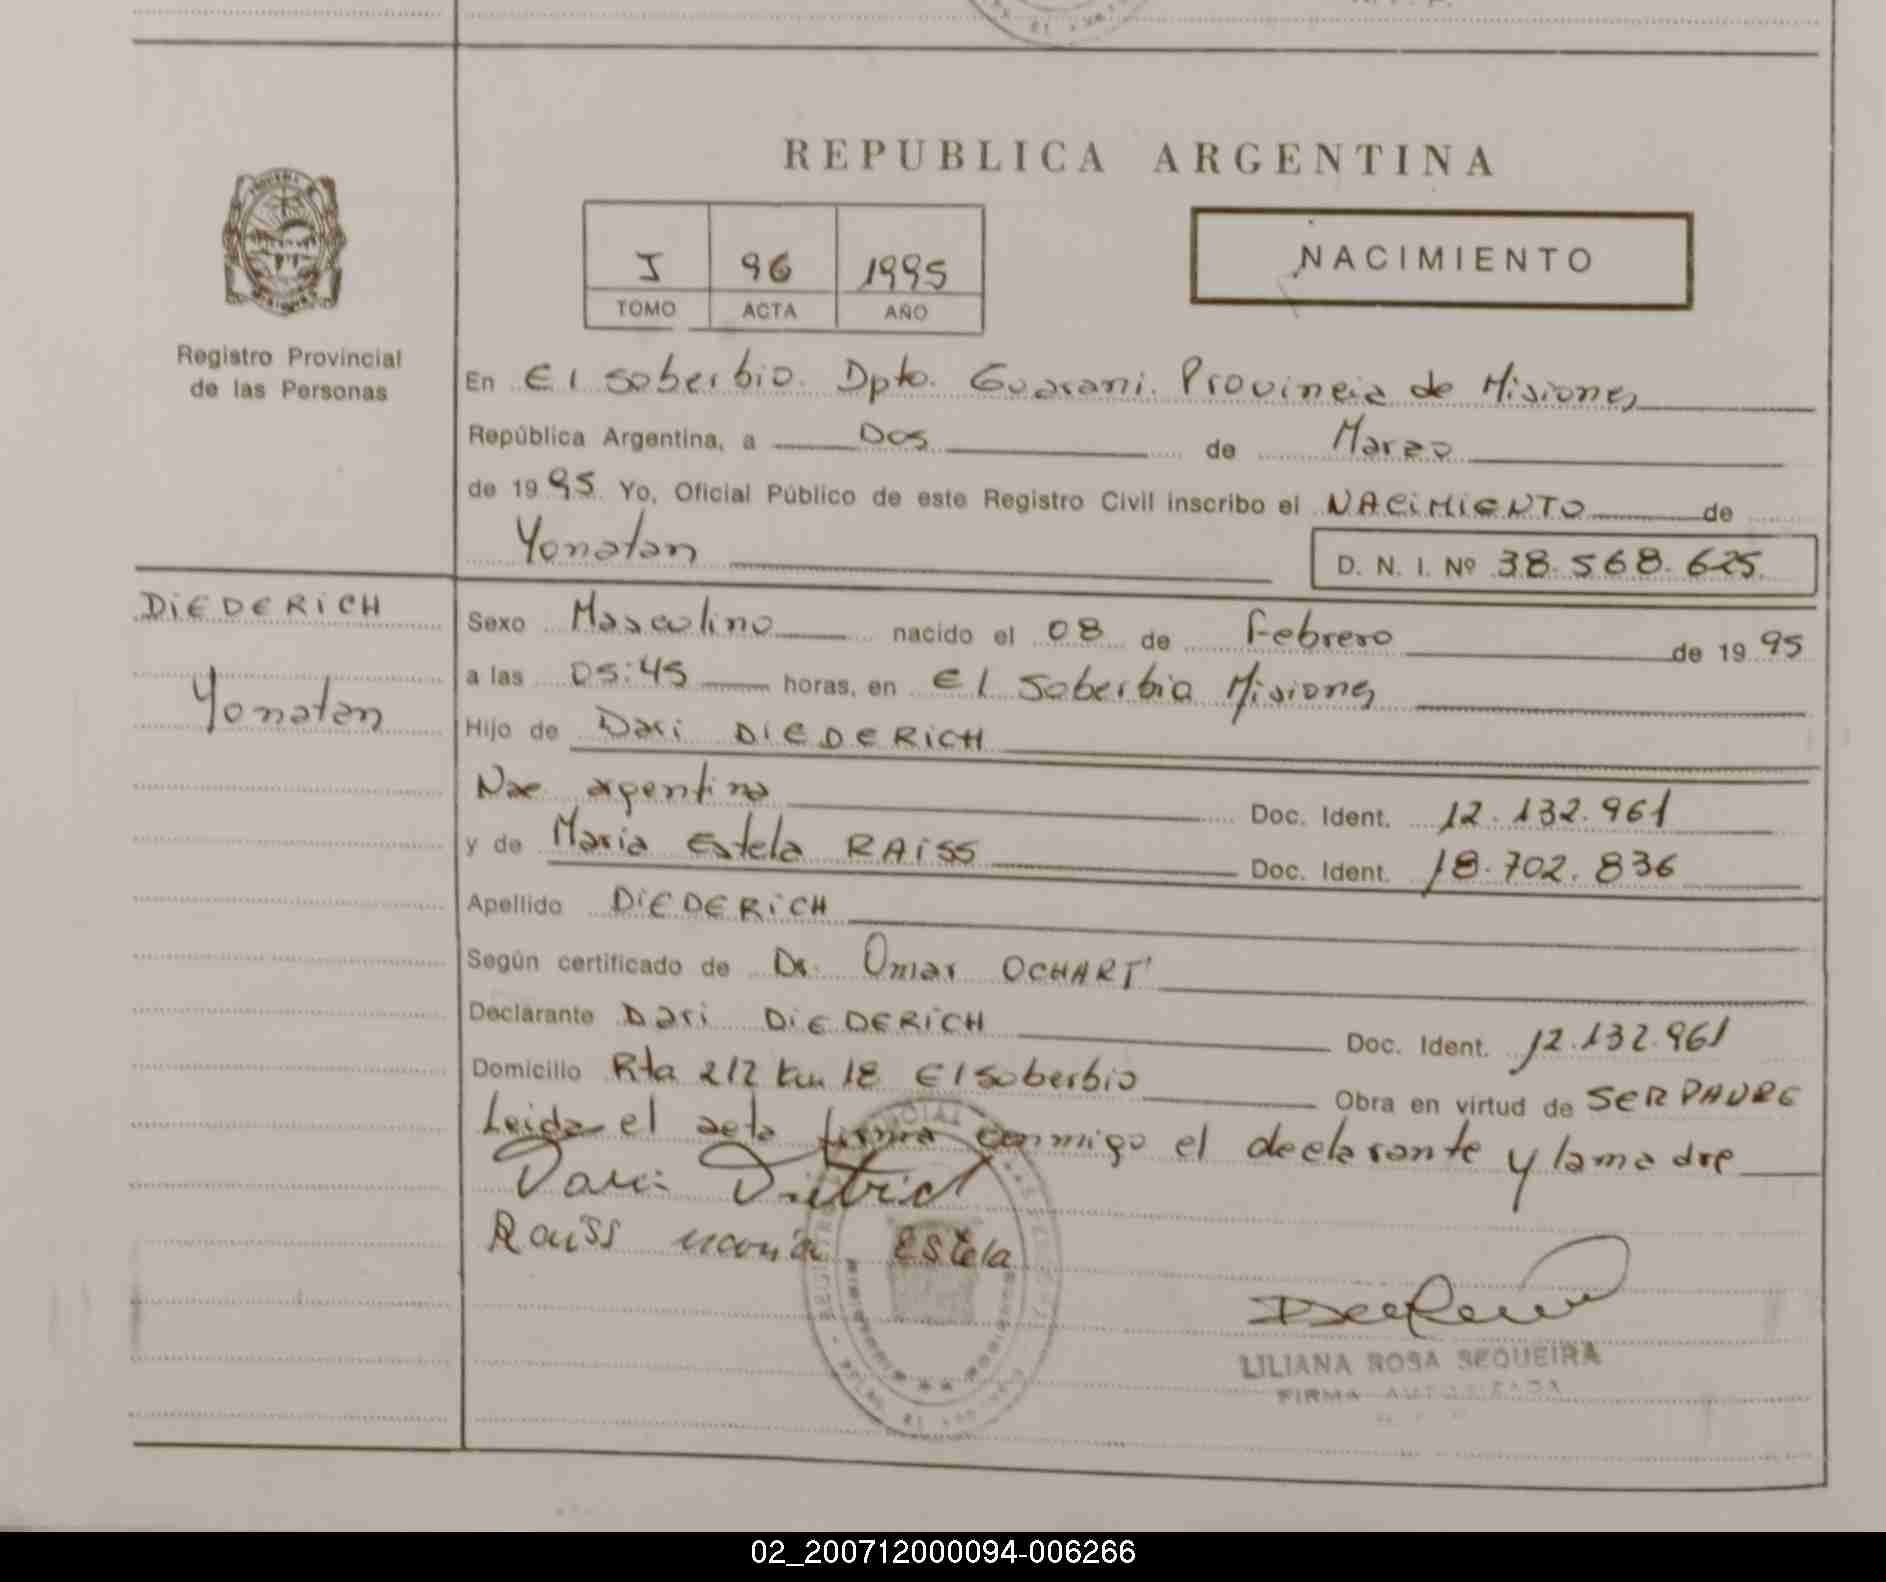 REPUBLICA ARGENTINA
I 96 1995
TOMO ACTA AÑO
NACIMIENTO
Registro Provincial
de las Personas
En El Soberbio. Dpto. Guarani. Provincia de Misiones
República Argentina, a Dos de Marzo
de 1995 Yo, Oficial Público de este Registro Civil inscribo el NACIMIENTO de
Yonatan
D. N. I. Nº 38.568.625
DIEDERICH
Yonatan
Sexo Masculino nacido el 08 de Febrero de 1995
a las 05:45 horas, en El Soberbio Misiones
Hijo de Dari DIEDERICH
Nac argentina Doc. Ident. 12.132.961
y de Maria Estela RAISS Doc. Ident. 18.702.836
Apellido DIEDERICH
Según certificado de Dr. Omar OCHART
Declarante Dari DIEDERICH Doc. Ident. 12.132.961
Domicilio Rta 212 km 18 El Soberbio Obra en virtud de SER PADRE
Leida el acta firma conmigo el declarante y la madre
Dari
Raiss maria Estela
LILIANA ROSA SEQUEIRA
FIRMA AUTORIZADA
02_200712000094-006266